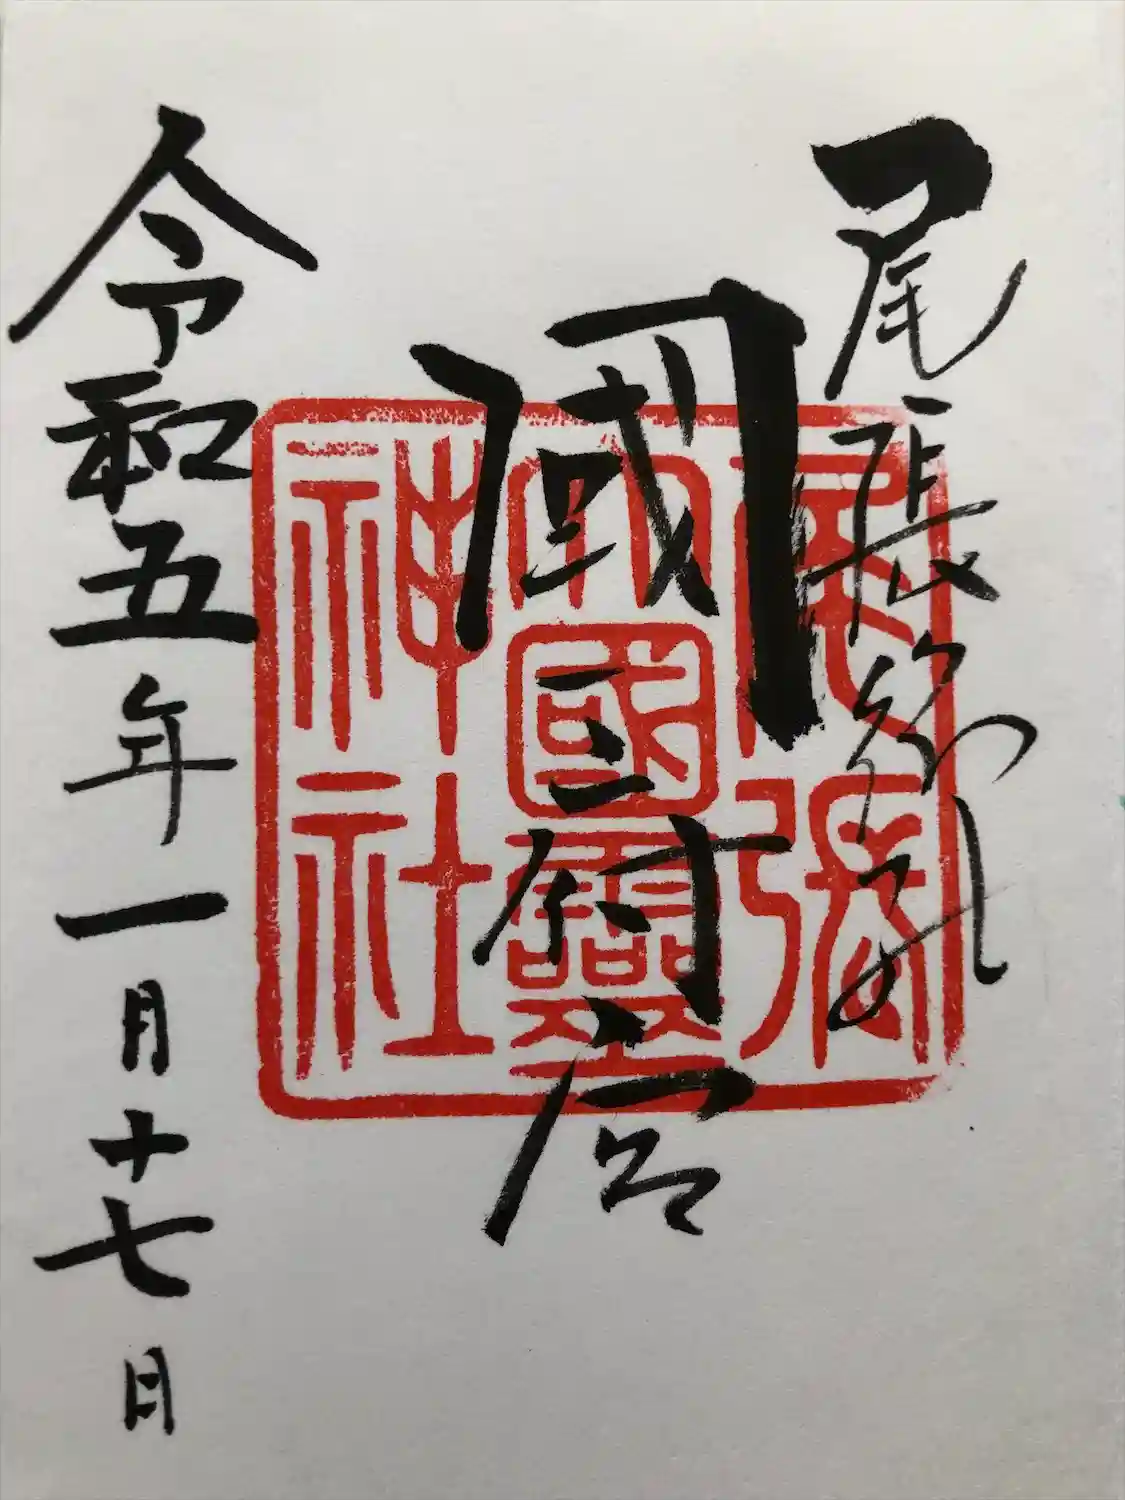 尾張総社
國府宮
令和五年一月十七日
尾張
大國霊
神社